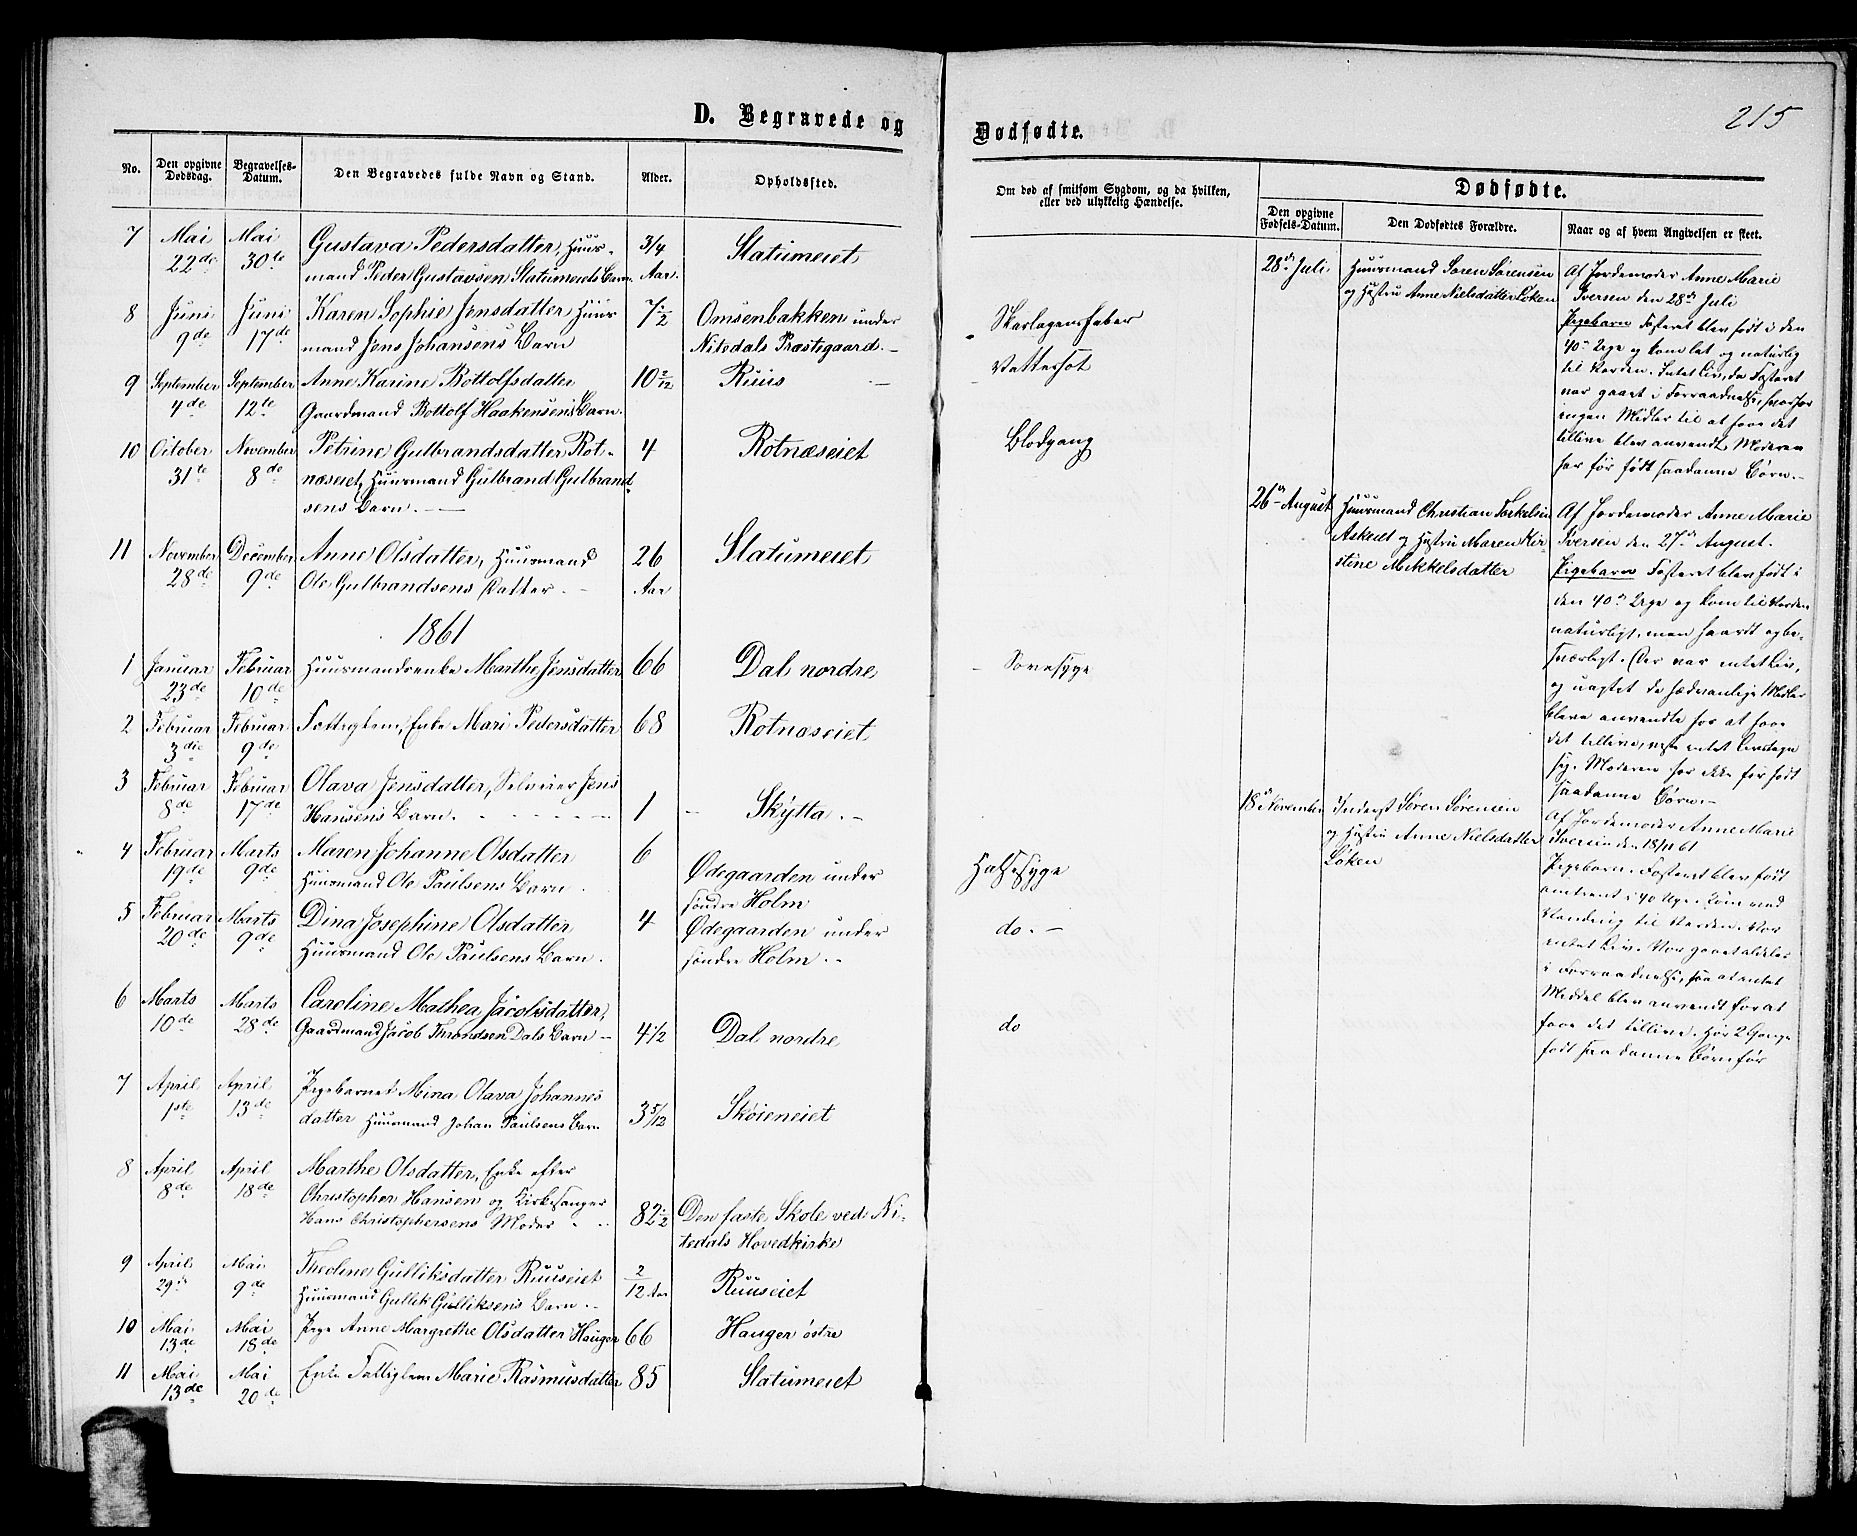 D. Begravede og
Dødfødte.
215
No.
Den opgivne Dødsdag.
Begravelses-Datum.
Den Begravedes fulde Navn og Stand.
Alder.
Opholdssted.
Om død af smitsom Sygdom, og da hvilken,
eller ved ulykkelig Hændelse.
Dødfødte.
Den opgivne Fødsels-Datum.
Den Dødfødtes Forældre.
Naar og af hvem Angivelsen er skeet.
7 Mai Mai Gustava Pedersdatter, Huus- 3/4 Slatumeiet
22de 30te mand Peder Gustavsen Slatumeiets Barn. Aar.
8 Juni Juni Karen Sophie Jensdatter Huus 7 1/2 Omsenbakken under Skarlagensfeber
9de 17de mand Jens Johansens Barn Nitedals Præstegaard.
9 September September Anne Karine Bottolfsdatter 10 2/12 Ruus Vattersot
4de 12te Gaardmand Bottolf Haakensens Barn.
10 October November Petrine Gulbrandsdatter Rot- 4 Rotnæseiet Blodgang
31te 8de næseiet, Huusmand Gulbrand Gulbrand-
sens Barn.
11 November December Anne Olsdatter, Huusmand 26 Slatumeiet
28de 9de Ole Gulbrandsens Datter Aar
1861
1 Januar Februar Huusmandsenke Marthe Jensdatter 66 Dal nordre
23de 10de
2 Februar Februar Fattiglem, Enke Mari Pedersdatter 68 Rotnæseiet
3die 9de
3 Februar Februar Olava Jensdatter, Selveier Jens
8de 17de Hansens Barn. 1 Skytta.
4 Februar Marts Maren Johanne Olsdatter 6 Ødegaarden under Halssyge
19de 9de Huusmand Ole Paulsens Barn. søndre Holm
5 Februar Marts Dina Josephine Olsdatter 4 Ødegaarden under do.
20de 9de Huusmand Ole Paulsens Barn. søndre Holm
6 Marts Marts Caroline Mathea Jacobsdatter,
10de 28de Gaardmand Jacob Throndsen Dals Barn 4 1/2 Dal nordre do
7 April April Pigebarnet Mina Olava Johannes
1ste 13de datter Huusmand Johan Paulsens Barn 3 5/12 Skøieneiet
8 April April Marthe Olsdatter, Enke efter
8de 18de Christopher Hansen og Kirkesanger
Hans Christophersens Moder 82 1/2 Den faste Skole ved Ni-
tedals Hovedkirke
9 April Mai Theoline Gulliksdatter Ruuseiet 2/12 Aar Ruuseiet
29de 9de Huusmand Gullik Gulliksens Barn
10 Mai Mai Pige Anne Margrethe Olsdatter Hauger 66 Hauger østre
13de 18de
11 Mai Mai Enke Fattiglem Marie Rasmusdatter 85 Slatumeiet
13de 20de
28de Juli. Huusmand Søren Sørensen
og Hustru Anne Nielsdatter Løken
Af Jordemoder Anne Marie
Iversen den 28de Juli
Pigebarn Fosteret blev født i den
40de Uge og kom let og naturlig
til Verden. Intet Liv, da Fosteret
var gaaet i Forraadnelse, hvorfor
ingen Midler til at faae det
tillive blev anvendt. Moderen
har før født saadanne Børn.
26de August Huusmand Christian Torkelsen
Askeiet og Hustru Maren Kir-
stine Mikkelsdatter
Af Jordemoder Anne Marie
Iversen den 27de August.
Pigebarn Fosteret blev født i
den 40de Uge og kom til Verden
naturligt, men haardt og be-
sværligt. Der var intet Liv,
og uagtet de sædvanlige Midler
bleve anvendte for at faae
det tillive, viste intet Livstegn
sig. Moderen har ikke før født
saadanne Børn.
18de November Inderst Søren Sørensen
og Hustru Anne Nielsdatter
Løken
Af Jordemoder Anne Marie
Iversen den 18/11 61
Pigebarn. Fosteret blev født
omtrent i 40 Uge. Kom ved
Vending til Verden. Var
intet Liv. Var gaaet aldeles
i Forraadnelse, saa at intet
Middel blev anvendt for at
faae det tillive. Har 2 Gange
født saadanne Børn før